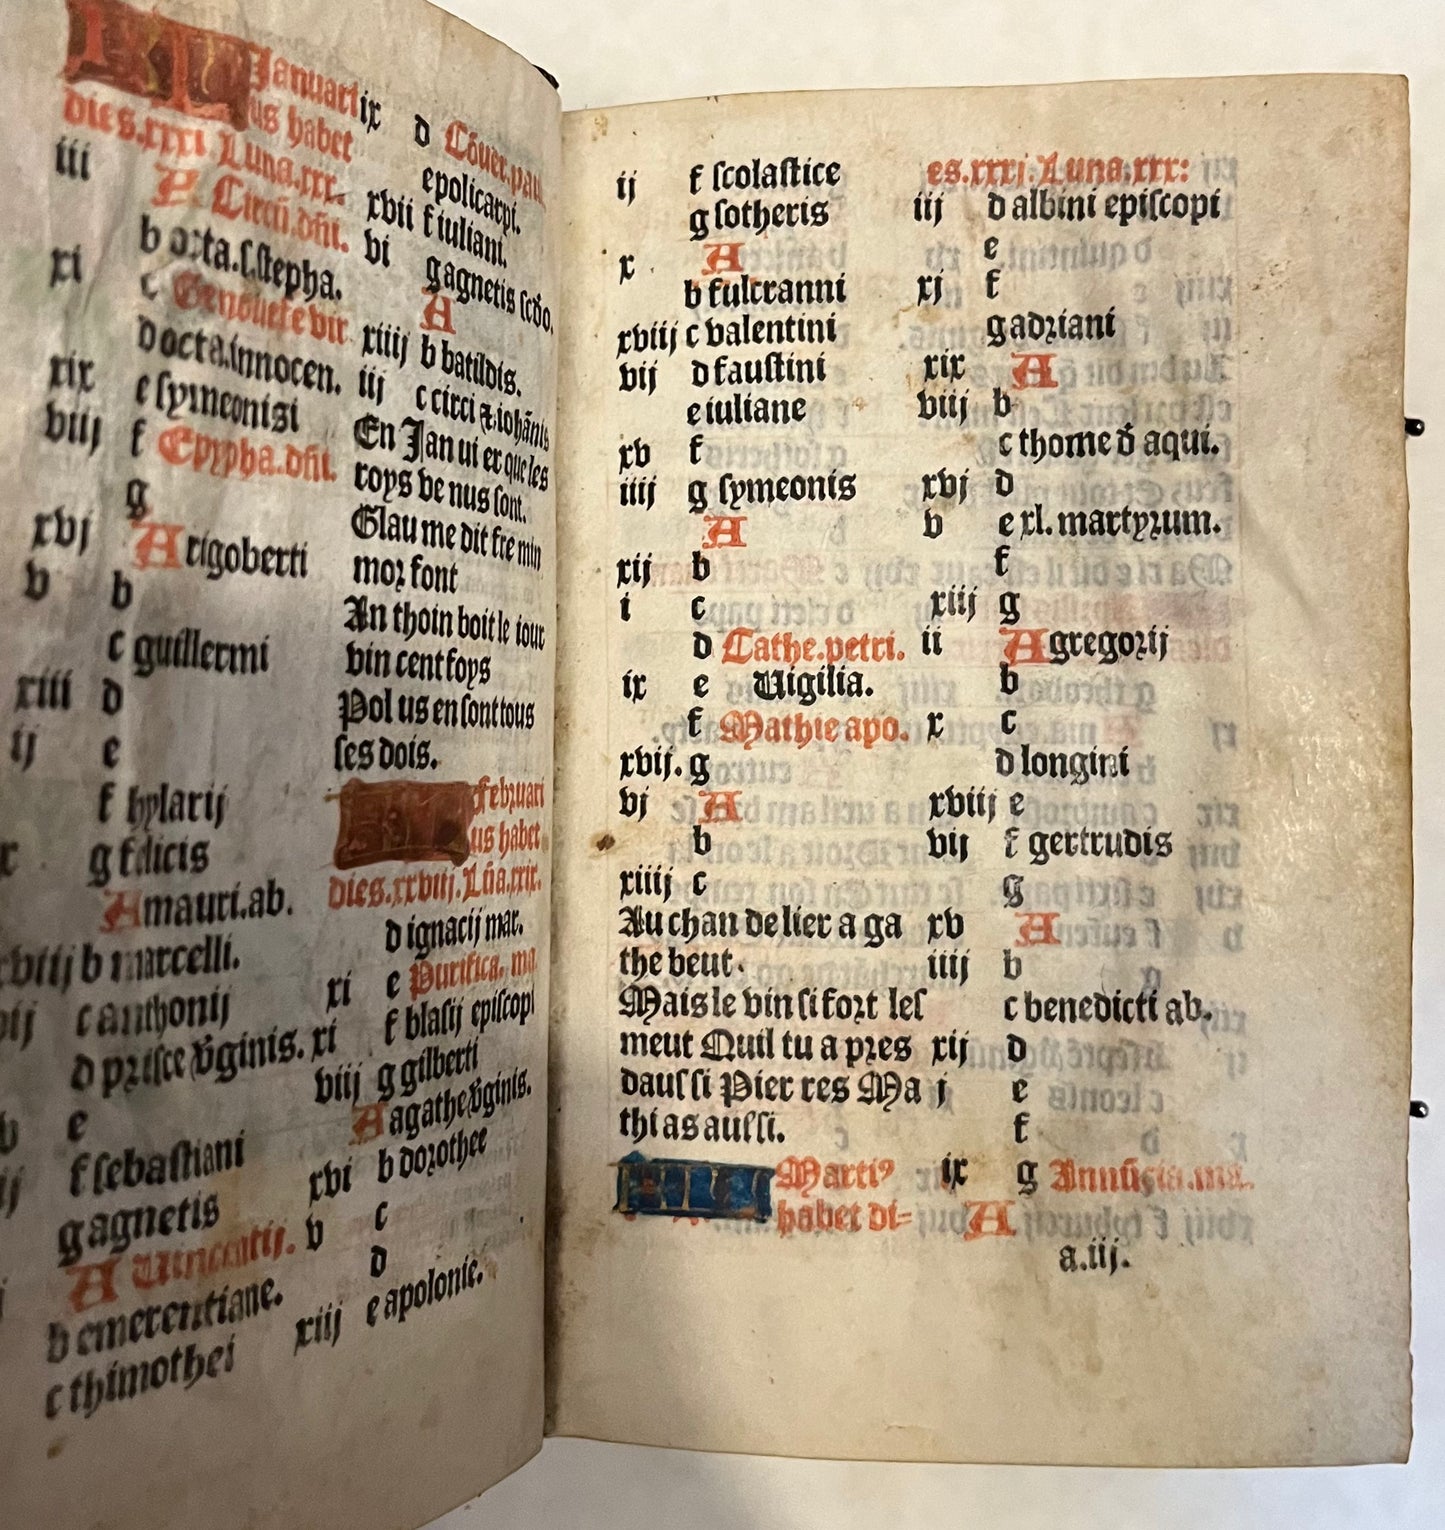 KL Januari
us habet
dies.xxxi Luna.xxx.
iii A Circū.dñi.
b octa.s.stepha.
xi c Genouefe vir
d octa.innocen.
xix e symeonisi
viij f Epypha.dñi.
g
xvj A rigoberti
v b
c guillermi
xiii d
ij e
f hylarij
x g felicis
A mauri.ab.
xviij b marcelli.
vij c anthonij
d prisce v̄ginis.
e
f sebastiani
g agnetis
A Vincentij.
b emerentiane.
c thimothei
ix d Cōuer.pau
epolicarpi.
xvii f iuliani.
vi g agnetis scdo.
A
xiiij b batildis.
iij c circi ⁊.iohānis
En Jan ui er que les
roys ve nus sont.
Glau me dit fre min
mor font
An thoin boit le iour
vin cent foys
Pol us en sont tous
ses dois.
KL Februari
us habet
dies.xxviij.Lūa.xxix.
d ignacij mar.
xi e Purifica. ma
xi f blasij episcopi
viij g gilberti
A agathe v̄ginis.
xvi b dorothee
v c
d
xiij e apolonie.
ij f scolastice
g sotheris
x A
b fulcranni
xviij c valentini
vij d faustini
e iuliane
xv f
iiij g symeonis
A
xij b
i c
d Cathe.petri.
ix e Vigilia.
f Mathie apo.
xvij. g
vj A
b
xiiij c
Au chan de lier a ga
the beut.
Mais le vin si fort les
meut Quil tu a pres
daus si Pier res Ma
thi as aussi.
KL Marti⁹
habet di=
es.xxxj.Luna.xxx:
iij d albini episcopi
e
xj f
g adriani
xix A
viij b
c thome d̄ aqui.
xvj d
v e xl. martyrum.
f
xiij g
ii A gregorij
b
x c
d longini
xviij e
vij f gertrudis
g
xv A
iiij b
c benedicti ab.
xij d
j e
f
ix g Annūcia.ma.
A
a.iij.